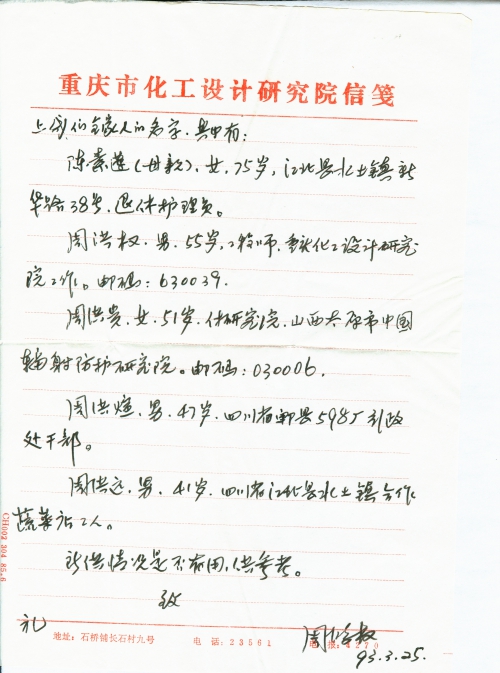 重庆市化工设计研究院信笺
上我们全家人的名字,其中有:
陈素莲(母亲),女,75岁,江北县水土镇新
华路38号,退休护理员。
周洪权,男,55岁,工程师,重庆化工设计研究
院工作。邮码:630039.
周洪贵,女,51岁,研究院,山西太原市中国
辐射防护研究院。邮码:030006,
周洪煊,男,47岁,四川省郫县598厂行政
处干部。
周洪远,男,41岁,四川省江北县水土镇合作
蔬菜站工人。
所供情况是否有用,供参考。
致
礼
周洪权
93.3.25.
地址:石桥铺长石村九号 电话:23561 电报:4270
CH002.304.85.6